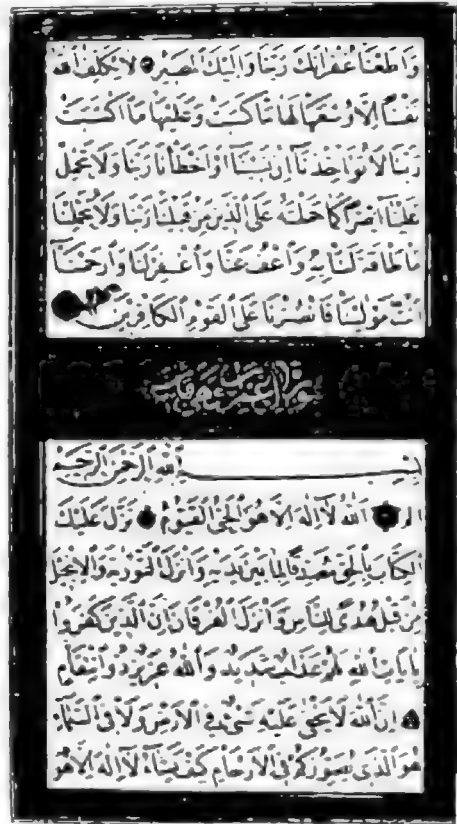 وَاَطَعْنَا غُفْرَانَكَ رَبَّنَا وَاِلَيْكَ الْمَصِيرُ لَا يُكَلِّفُ اللّٰهُ
نَفْسًا اِلَّا وُسْعَهَا لَهَا مَا كَسَبَتْ وَعَلَيْهَا مَا اكْتَسَبَتْ
رَبَّنَا لَا تُؤَاخِذْنَآ اِنْ نَسِينَآ اَوْ اَخْطَأْنَا رَبَّنَا وَلَا تَحْمِلْ
عَلَيْنَآ اِصْرًا كَمَا حَمَلْتَهُ عَلَى الَّذِينَ مِنْ قَبْلِنَا رَبَّنَا وَلَا تُحَمِّلْنَا
مَا لَا طَاقَةَ لَنَا بِهِ وَاعْفُ عَنَّا وَاغْفِرْ لَنَا وَارْحَمْنَآ
اَنْتَ مَوْلٰينَا فَانْصُرْنَا عَلَى الْقَوْمِ الْكَافِرِينَ
سورة
بِسْمِ اللّٰهِ الرَّحْمٰنِ الرَّحِيمِ
الٓمٓ اَللّٰهُ لَآ اِلٰهَ اِلَّا هُوَ الْحَىُّ الْقَيُّومُ نَزَّلَ عَلَيْكَ
الْكِتَابَ بِالْحَقِّ مُصَدِّقًا لِمَا بَيْنَ يَدَيْهِ وَاَنْزَلَ التَّوْرٰيةَ وَالْاِنْجِيلَ
مِنْ قَبْلُ هُدًى لِلنَّاسِ وَاَنْزَلَ الْفُرْقَانَ اِنَّ الَّذِينَ كَفَرُوا
بِاٰيَاتِ اللّٰهِ لَهُمْ عَذَابٌ شَدِيدٌ وَاللّٰهُ عَزِيزٌ ذُو انْتِقَامٍ
اِنَّ اللّٰهَ لَا يَخْفٰى عَلَيْهِ شَىْءٌ فِى الْاَرْضِ وَلَا فِى السَّمَآءِ
هُوَ الَّذِى يُصَوِّرُكُمْ فِى الْاَرْحَامِ كَيْفَ يَشَآءُ لَآ اِلٰهَ اِلَّا هُوَ